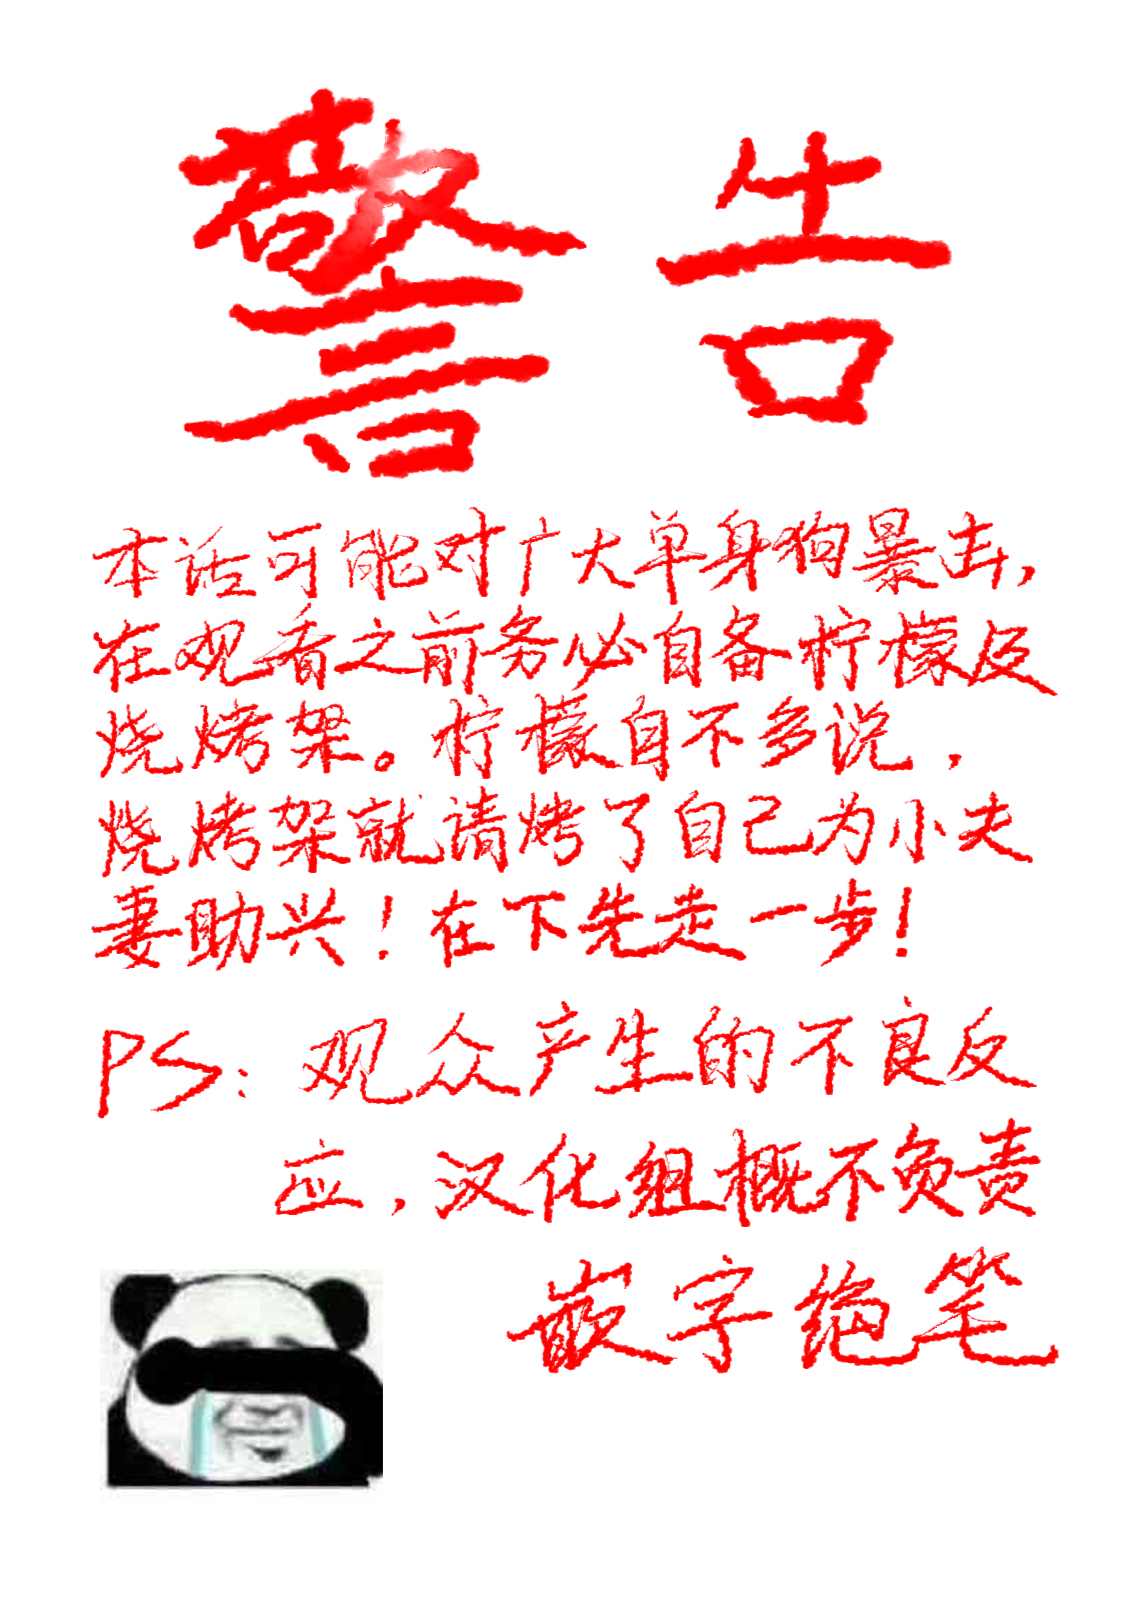 警告
本话可能对广大单身狗暴击，
在观看之前务必自备柠檬及
烧烤架。柠檬自不多说，
烧烤架就请烤了自己为小夫
妻助兴！在下先走一步！
PS：观众产生的不良反
应，汉化组概不负责
嵌字绝笔